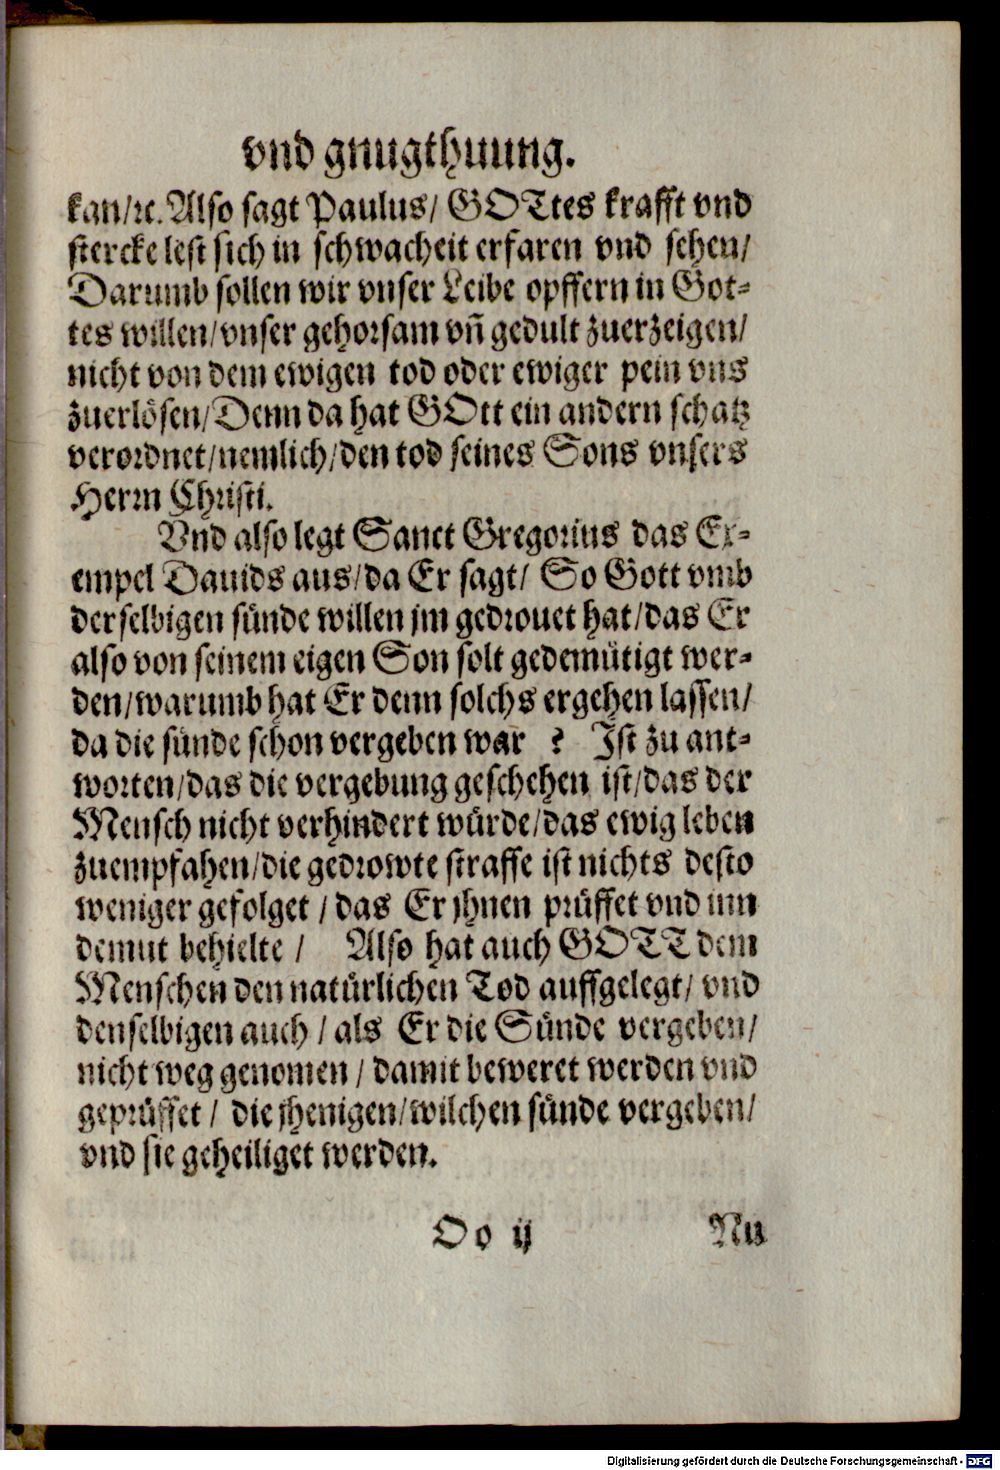 vnd gnugthuung.
kan/ꝛc. Also sagt Paulus/ GOTtes krafft vnd
stercke lest sich in schwacheit erfaren vnd sehen/
Darumb sollen wir vnser Leibe opffern in Got-
tes willen/vnser gehorsam vn̄ gedult zuerzeigen/
nicht von dem ewigen tod oder ewiger pein vns
zuerlösen/Denn da hat GOtt ein andern schatz
verordnet/nemlich/den tod seines Sons vnsers
Herrn Christi.
Vnd also legt Sanct Gregorius das Ex-
empel Dauids aus/da Er sagt/ So Gott vmb
derselbigen sünde willen jm gedrouet hat/das Er
also von seinem eigen Son solt gedemütigt wer-
den/warumb hat Er denn solchs ergehen lassen/
da die sünde schon vergeben war ? Ist zu ant-
worten/das die vergebung geschehen ist/das der
Mensch nicht verhindert würde/das ewig leben
zuempfahen/die gedrowte straffe ist nichts desto
weniger gefolget / das Er jhnen prüffet vnd inn
demut behielte / Also hat auch GOTT dem
Menschen den natürlichen Tod auffgelegt/ vnd
denselbigen auch / als Er die Sünde vergeben/
nicht weg genomen / damit beweret werden vnd
geprüffet / die jhenigen/wilchen sünde vergeben/
vnd sie geheiliget werden.
Oo ij Nu
Digitalisierung gefördert durch die Deutsche Forschungsgemeinschaft - DFG